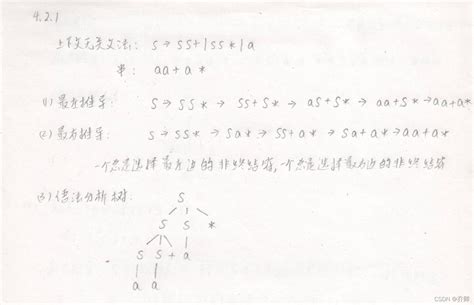 4.2.1
上下文无关文法: S → SS+|SS*|a
串: aa+a*
(1) 最左推导: S → SS* → SS+S* → aS+S* → aa+S* → aa+a*
(2) 最右推导: S → SS* → Sa* → SS+a* → Sa+a* → aa+a*
一个总是选择最左边的非终结符,一个总是选择最右边的非终结符
(3) 语法分析树:
S
S S *
S S + a
a a
CSDN @亦麟